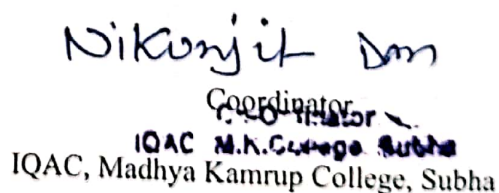 Nikunjit Das
Coordinator
Co-ordinator
IQAC M.K.College Subha
IQAC, Madhya Kamrup College, Subha